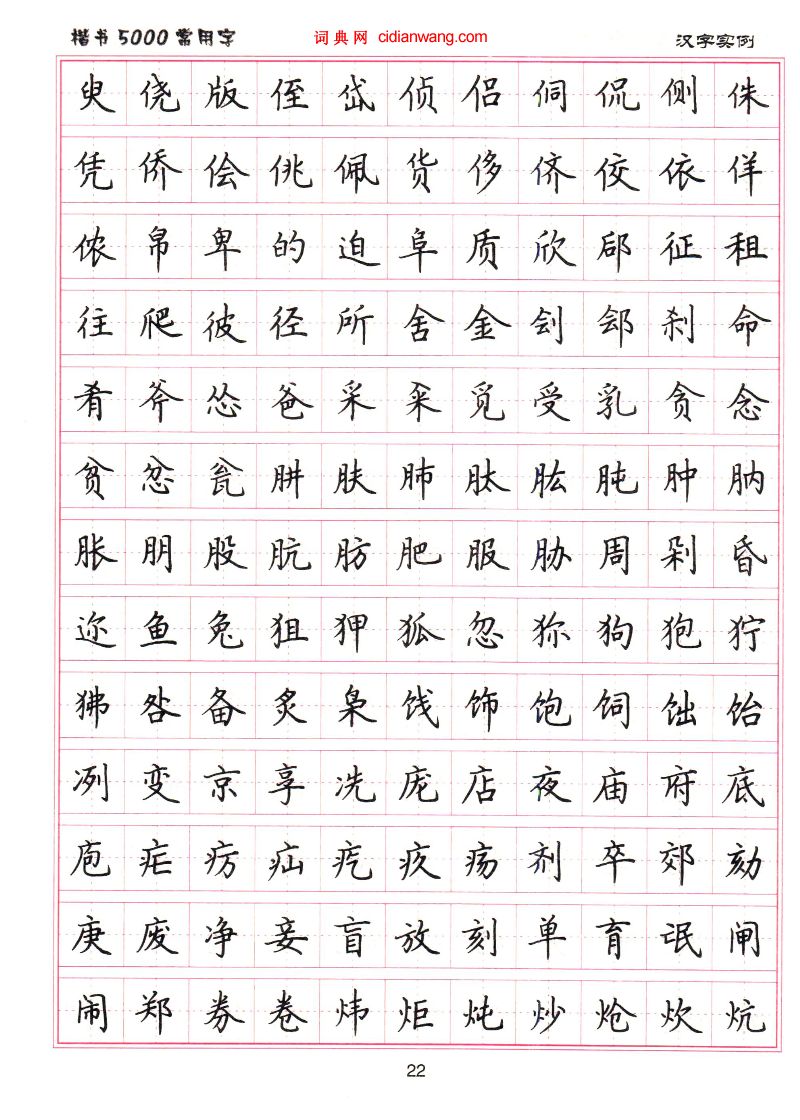 楷书5000常用字 词典网 cidianwang.com 汉字实例
臾 侥 版 侄 岱 侦 侣 侗 侃 侧 侏
凭 侨 侩 佻 佩 货 侈 侪 佼 依 佯
侬 帛 卑 的 迫 阜 质 欣 郈 征 租
往 爬 彼 径 所 舍 金 刽 郐 刹 命
肴 斧 怂 爸 采 籴 觅 受 乳 贪 念
贫 忿 瓮 肼 肤 肺 肽 肱 肫 肿 肭
胀 朋 股 肮 肪 肥 服 胁 周 剁 昏
迩 鱼 兔 狙 狎 狐 忽 狝 狗 狍 狞
狒 咎 备 炙 枭 饯 饰 饱 饲 饳 饴
冽 变 京 享 冼 庞 店 夜 庙 府 底
庖 疟 疠 疝 疙 疚 疡 剂 卒 郊 劾
庚 废 净 妾 盲 放 刻 单 育 氓 闸
闹 郑 券 卷 炜 炬 炖 炒 炝 炊 炕
22